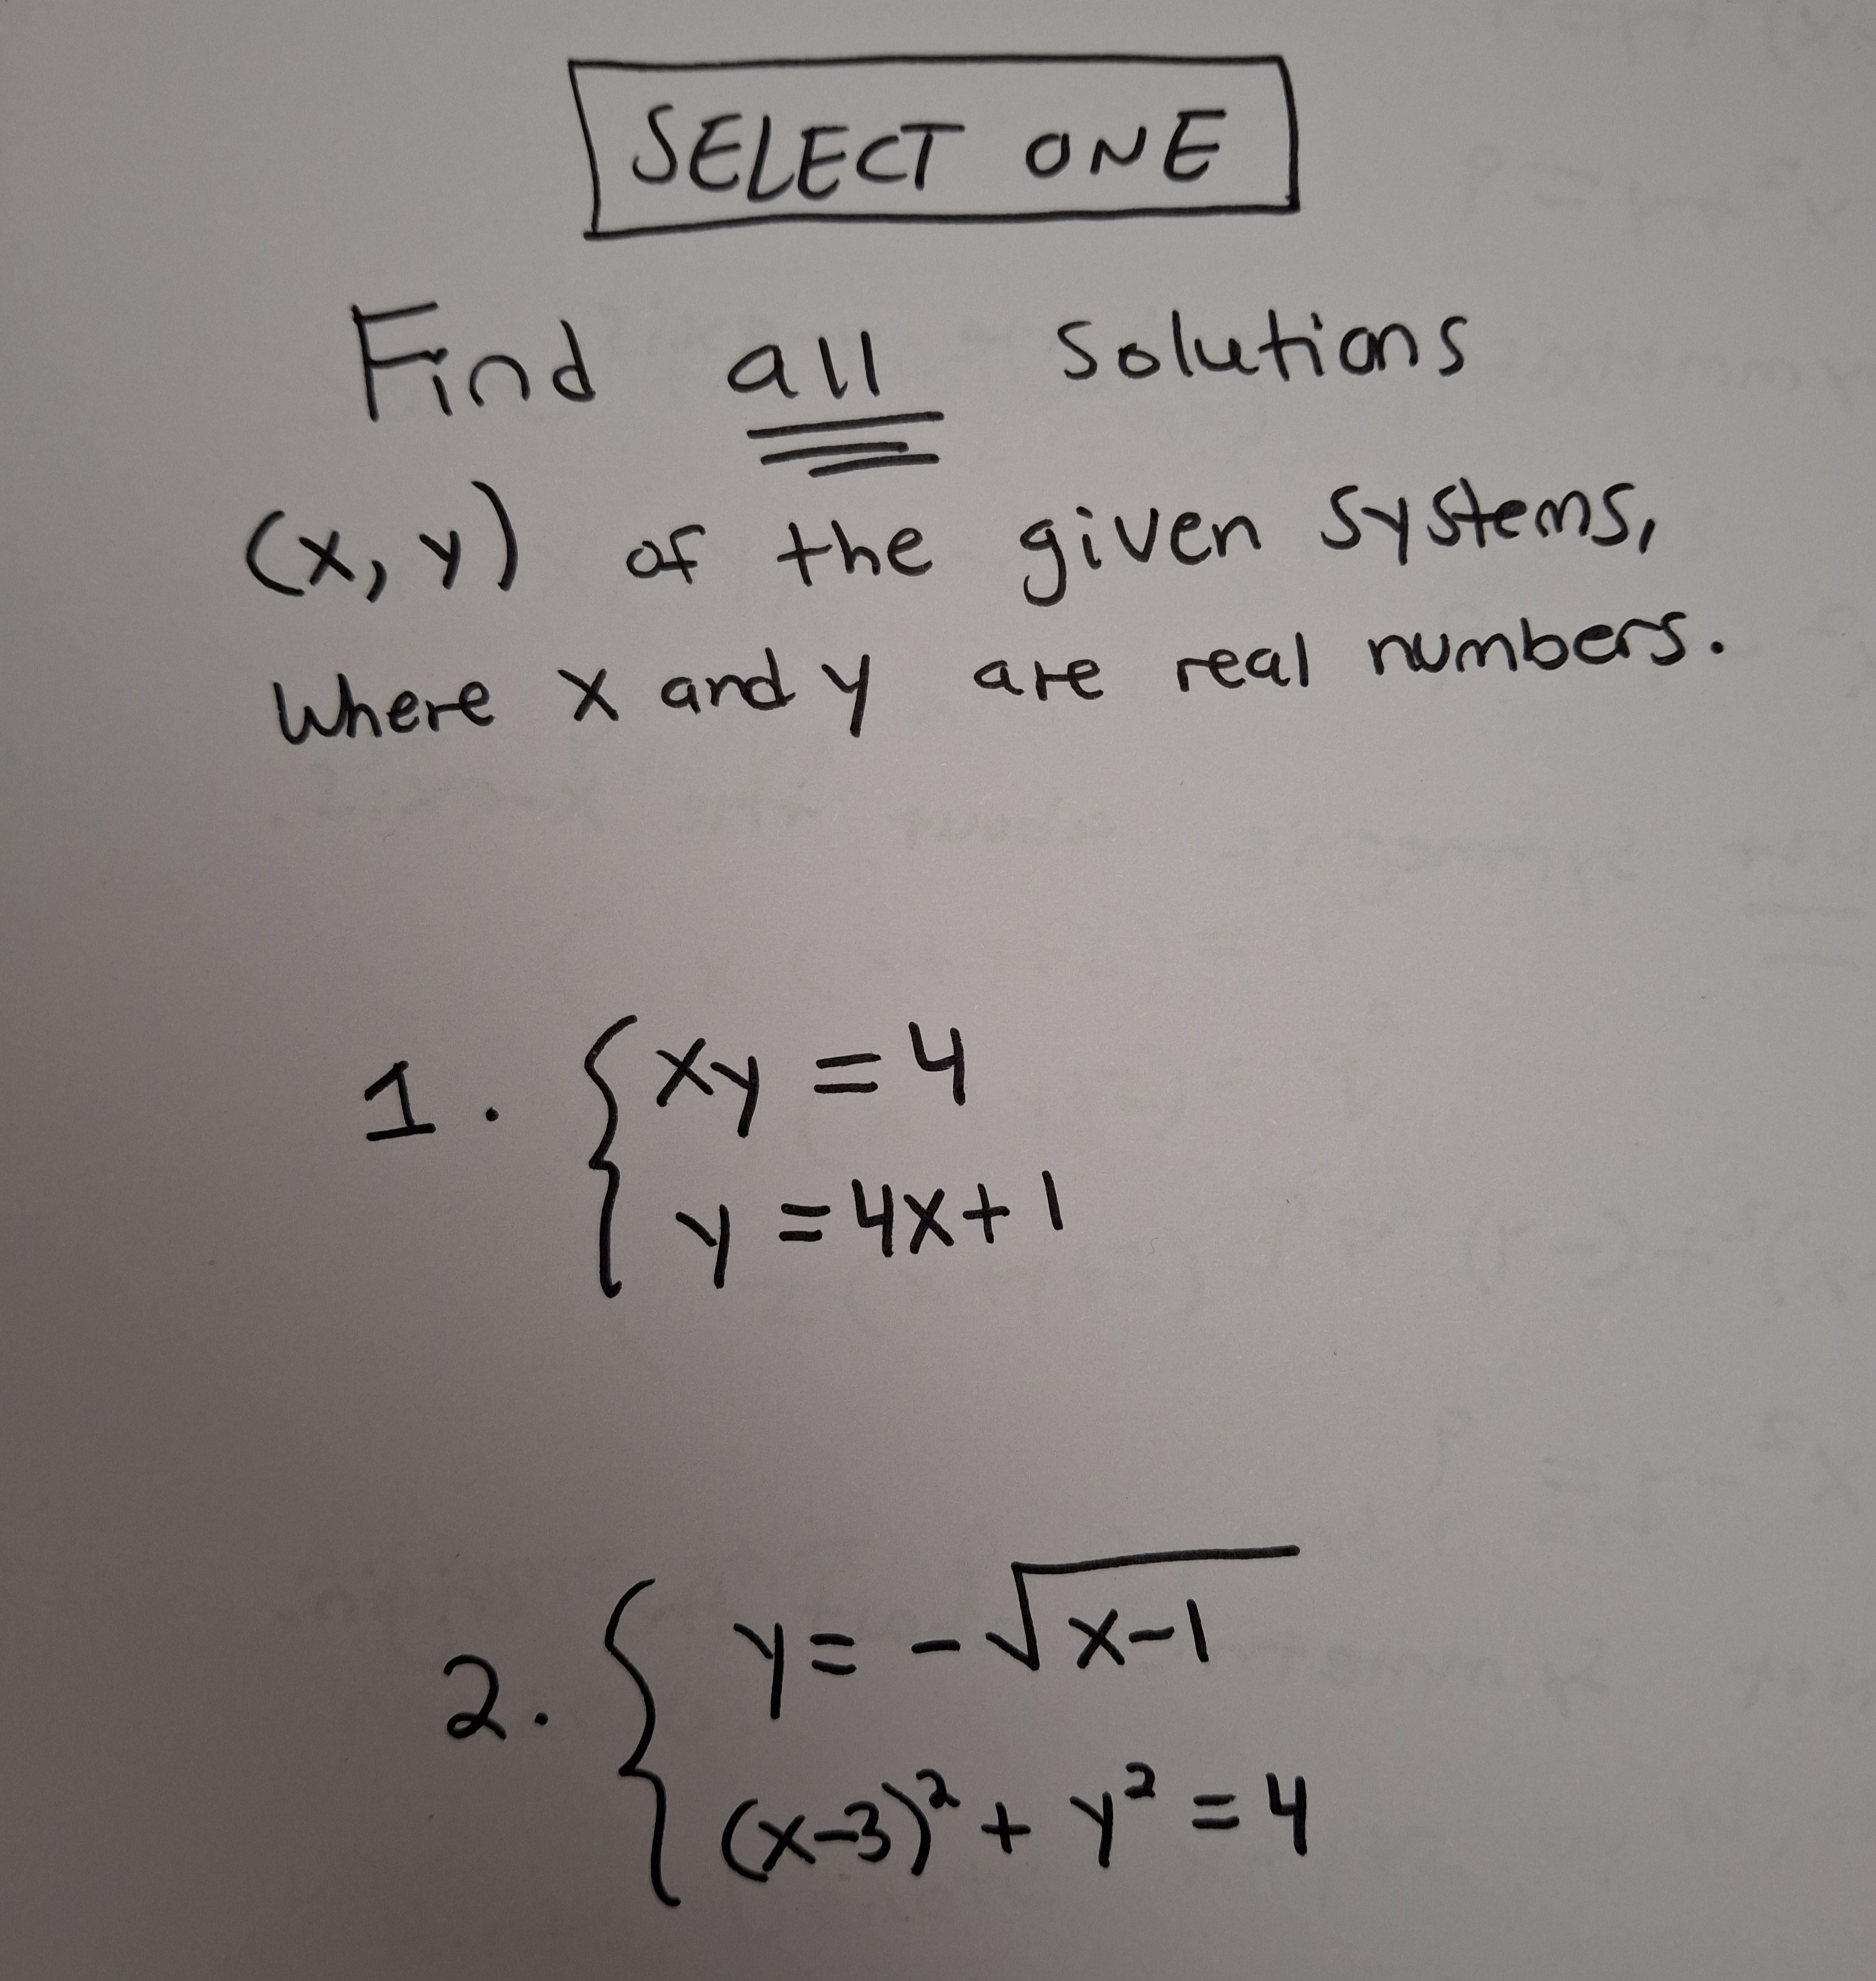 SELECT ONE
Find all solutions
(x, y) of the given systems,
where x and y are real numbers.
1. { xy = 4
y = 4x+1
2. { y = -√(x-1)
(x-3)² + y² = 4